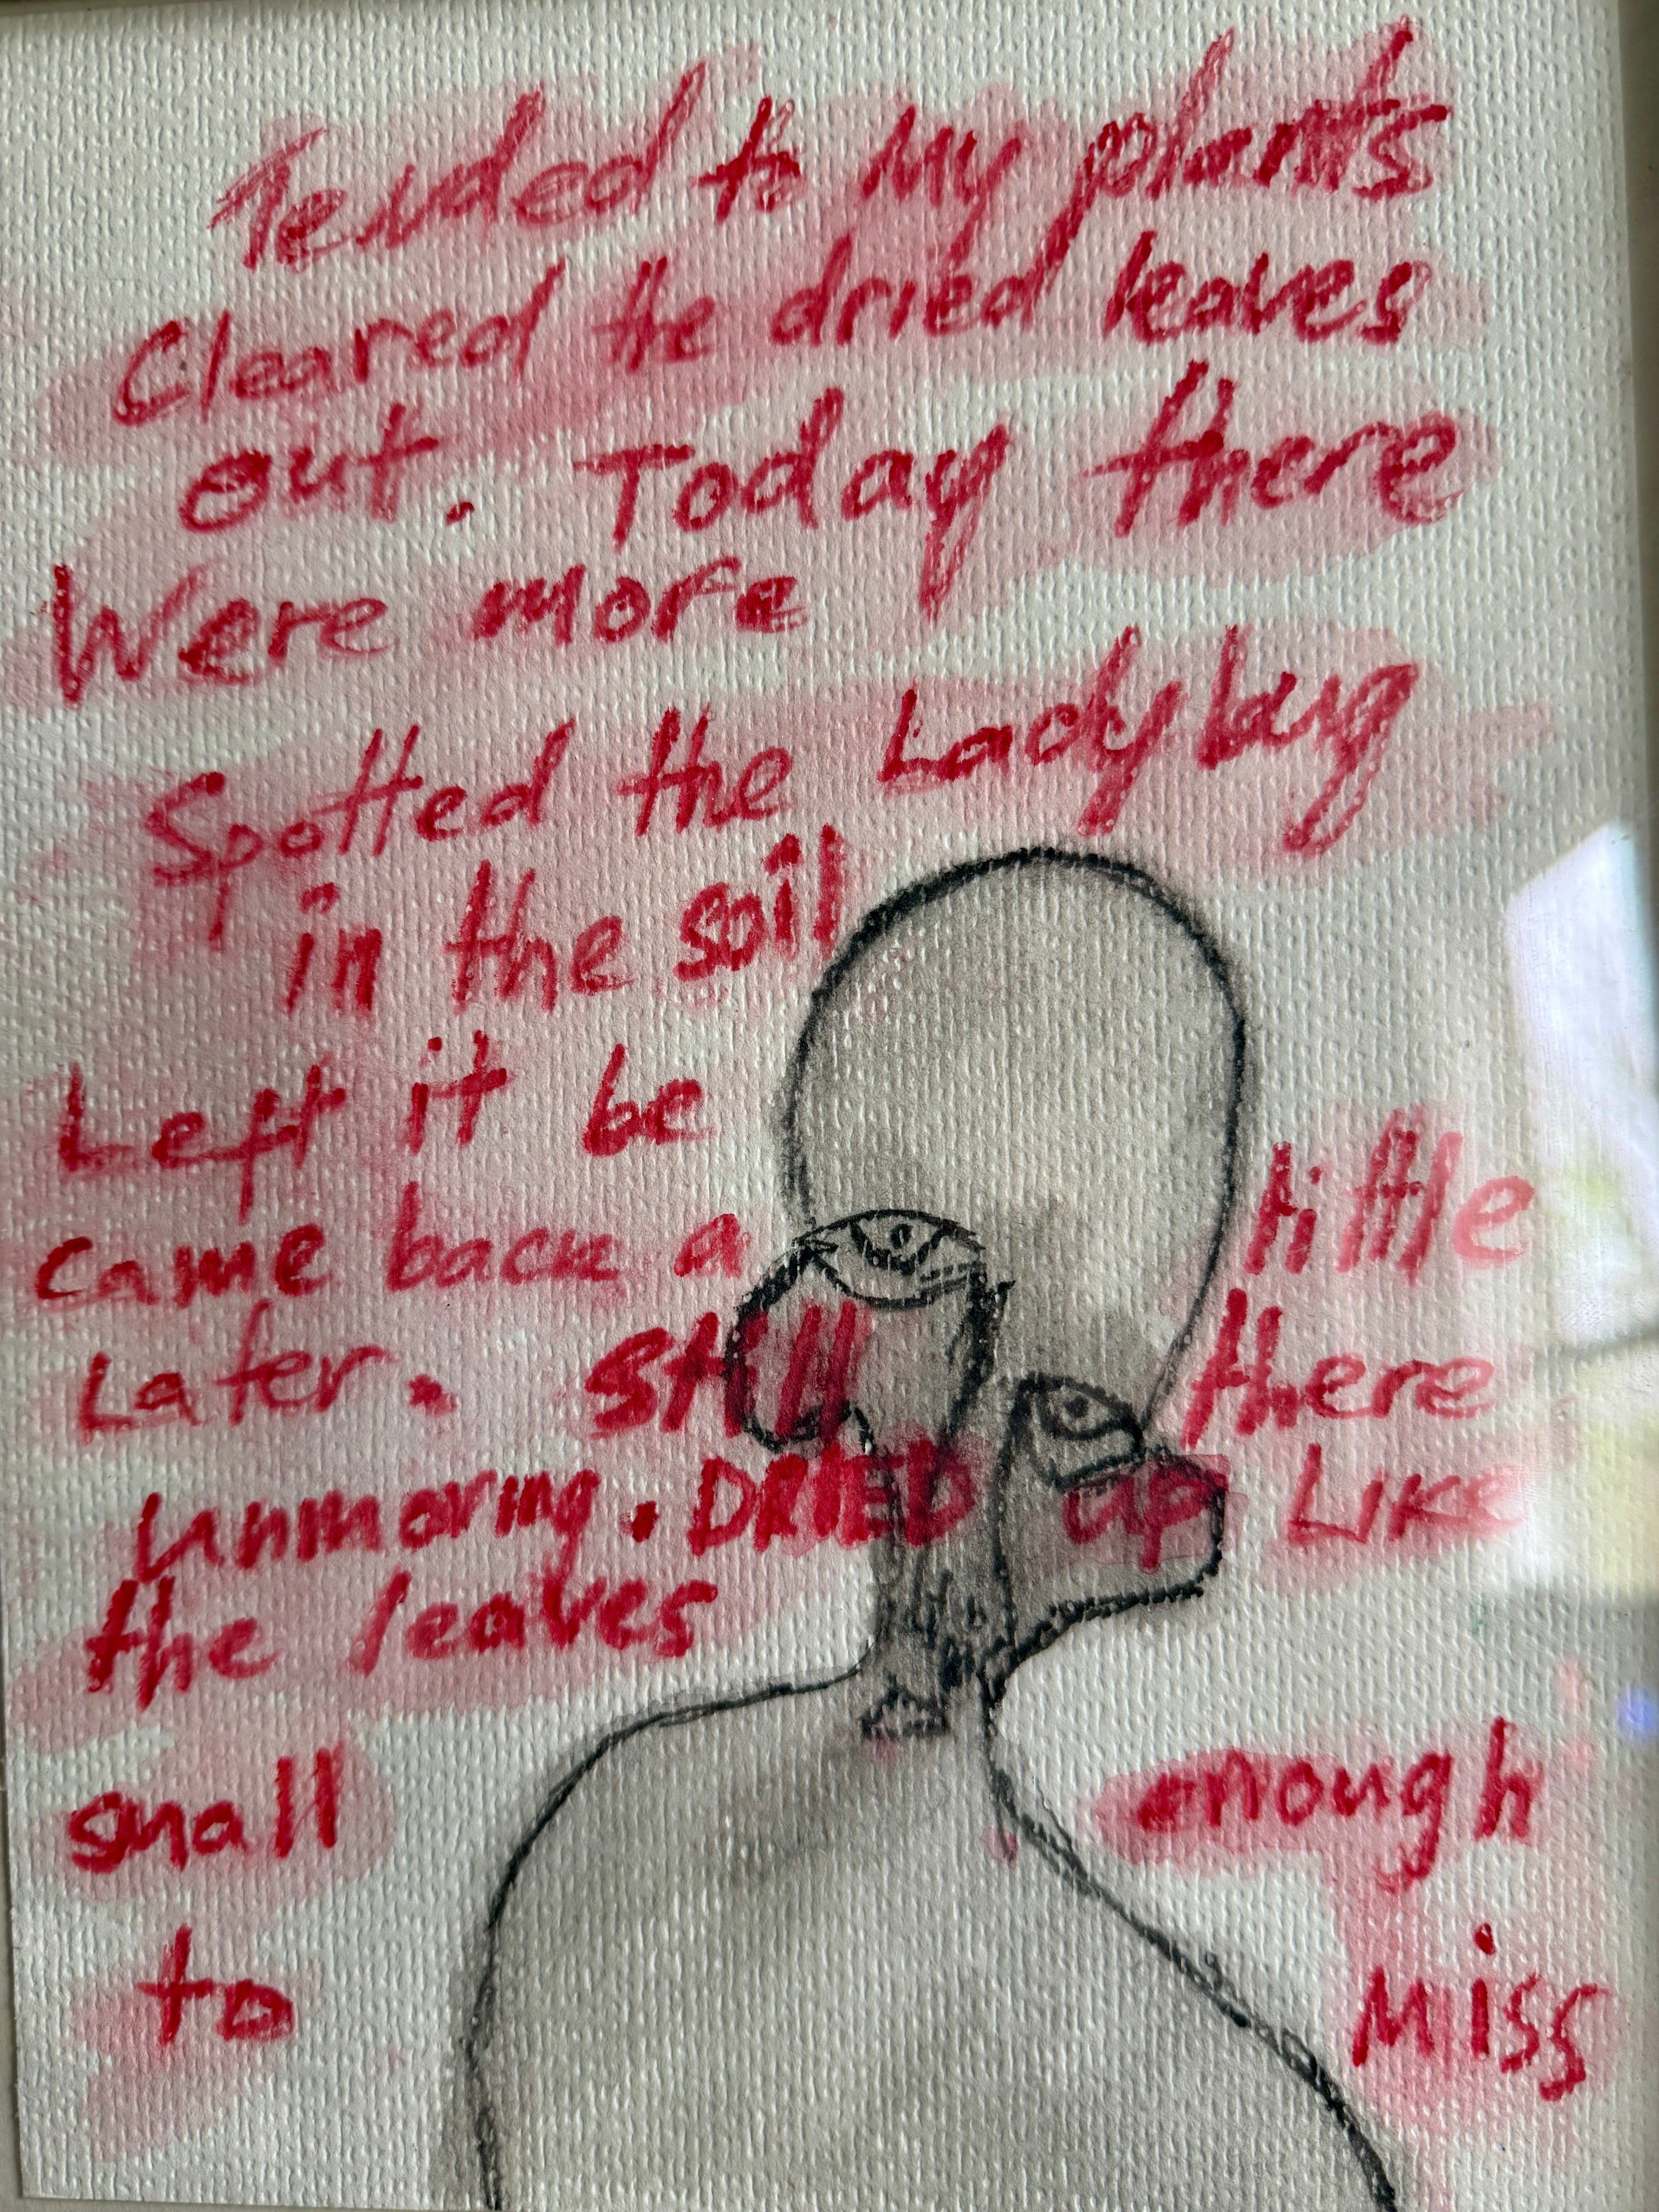 Tended to My plants
Cleared the dried leaves
out. Today there
Were more
Spotted the Ladybug
in the soil
Left it be
came back a little
Later. still there
Unmoving. DRIED up LIKE
the leaves
small enough
to Miss